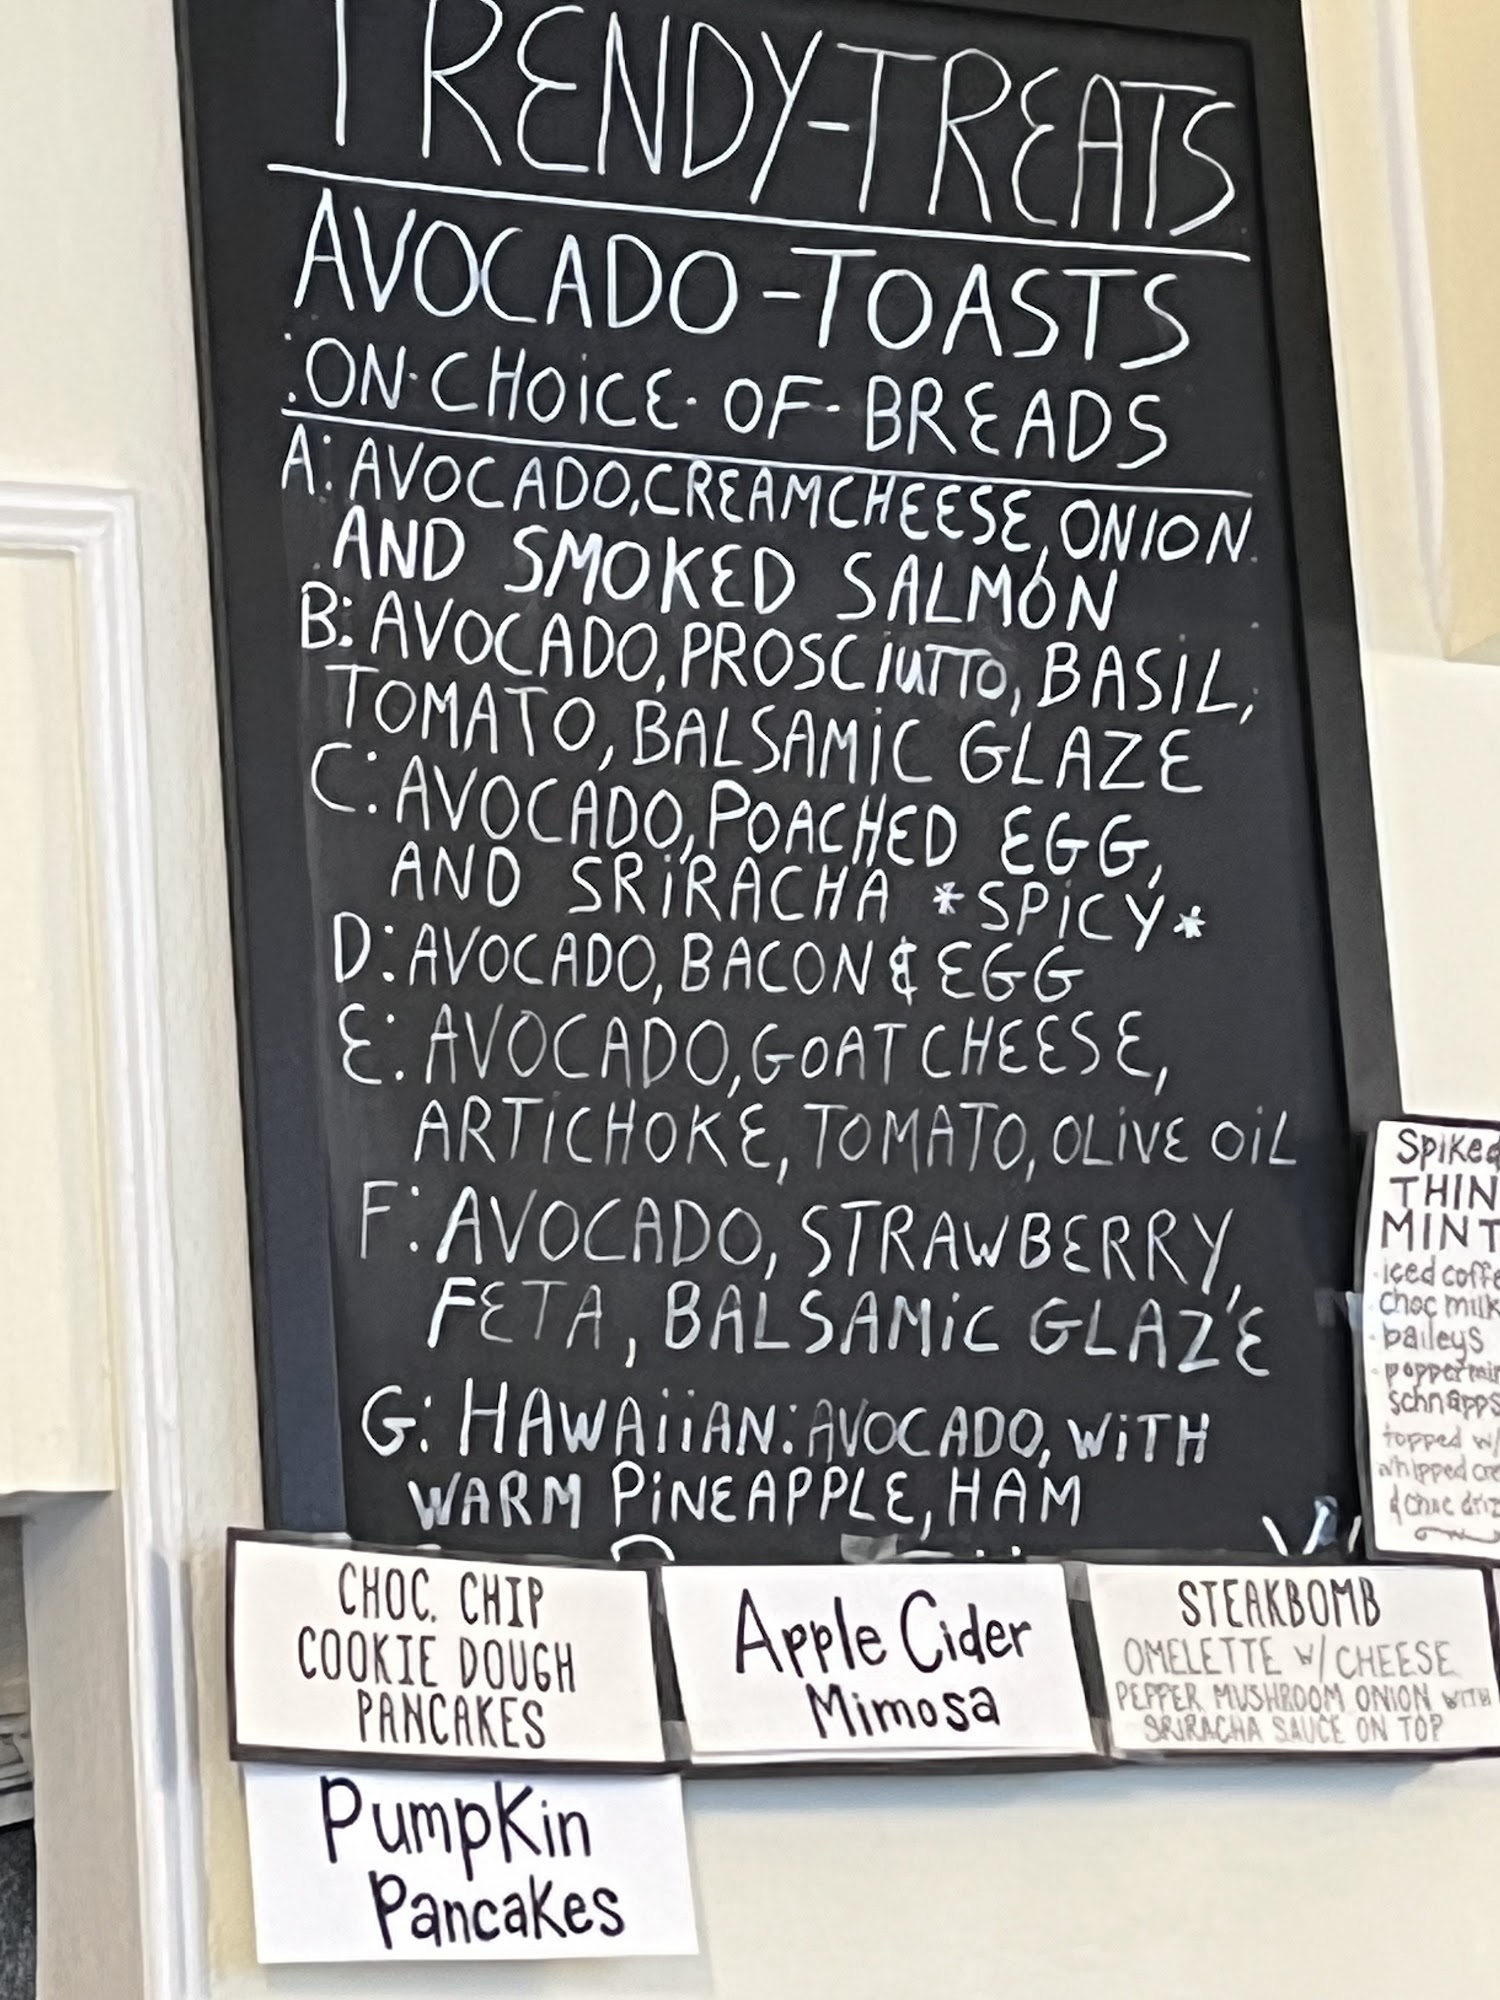 TRENDY-TREATS
AVOCADO-TOASTS
:ON·CHOiCE·OF·BREADS
A: AVOCADO, CREAMCHEESE, ONION
AND SMOKED SALMON
B: AVOCADO, PROSCIUTTO, BASIL,
TOMATO, BALSAMiC GLAZE
C: AVOCADO, POACHED EGG,
AND SRiRACHA *SPiCY*
D: AVOCADO, BACON & EGG
E: AVOCADO, GOAT CHEESE,
ARTiCHOKE, TOMATO, OLiVE OiL
F: AVOCADO, STRAWBERRY,
FETA, BALSAMiC GLAZE
G: HAWAiiAN: AVOCADO, WiTH
WARM PiNEAPPLE, HAM
Spiked
THIN
MINT
iced coffe
choc milk
baileys
peppermin
schnapps
topped w/
whipped cre
& choc driz
CHOC. CHIP
COOKIE DOUGH
PANCAKES
Apple Cider
Mimosa
STEAKBOMB
OMELETTE W/ CHEESE
PEPPER MUSHROOM ONION WITH
SRIRACHA SAUCE ON TOP
Pumpkin
Pancakes